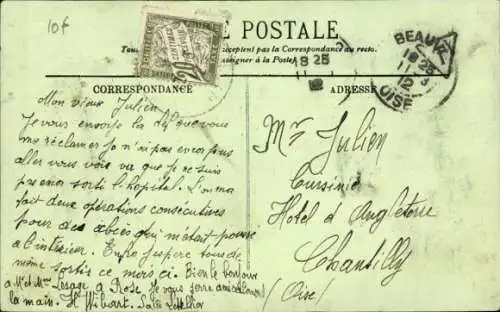 10f
TE POSTALE
Tous acceptent pas la Correspondance au recto.
seigner à la Poste
18 25
BEAUVAIS
18 25
11
12
OISE
20
CENTIMES
CORRESPONDANCE
ADRESSE
Mon vieux Julien
Je vous envoie la clef que vous
me réclamer je n'ai pas encor plus
aller vous voir vu que je ne suis
pas encor sorti l'hopital. L'on ma
fait deux opérations consécutives
pour des abcès qui m'était poussé
à l'intérieur. Enfin j'espère tous de
même sortir ce mois ci. Bien le bonjour
a Mr et Mme Lesage a Rose Je vous serre amicalement
la main. Hri Wibart. Salle
Mr Julien
Cuisinié
Hotel d'Angleterre
Chantilly
(Oise)